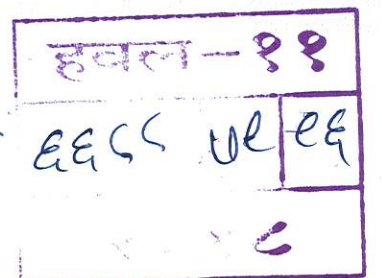 हवेल-११
६६८८ ५९ ९६
८